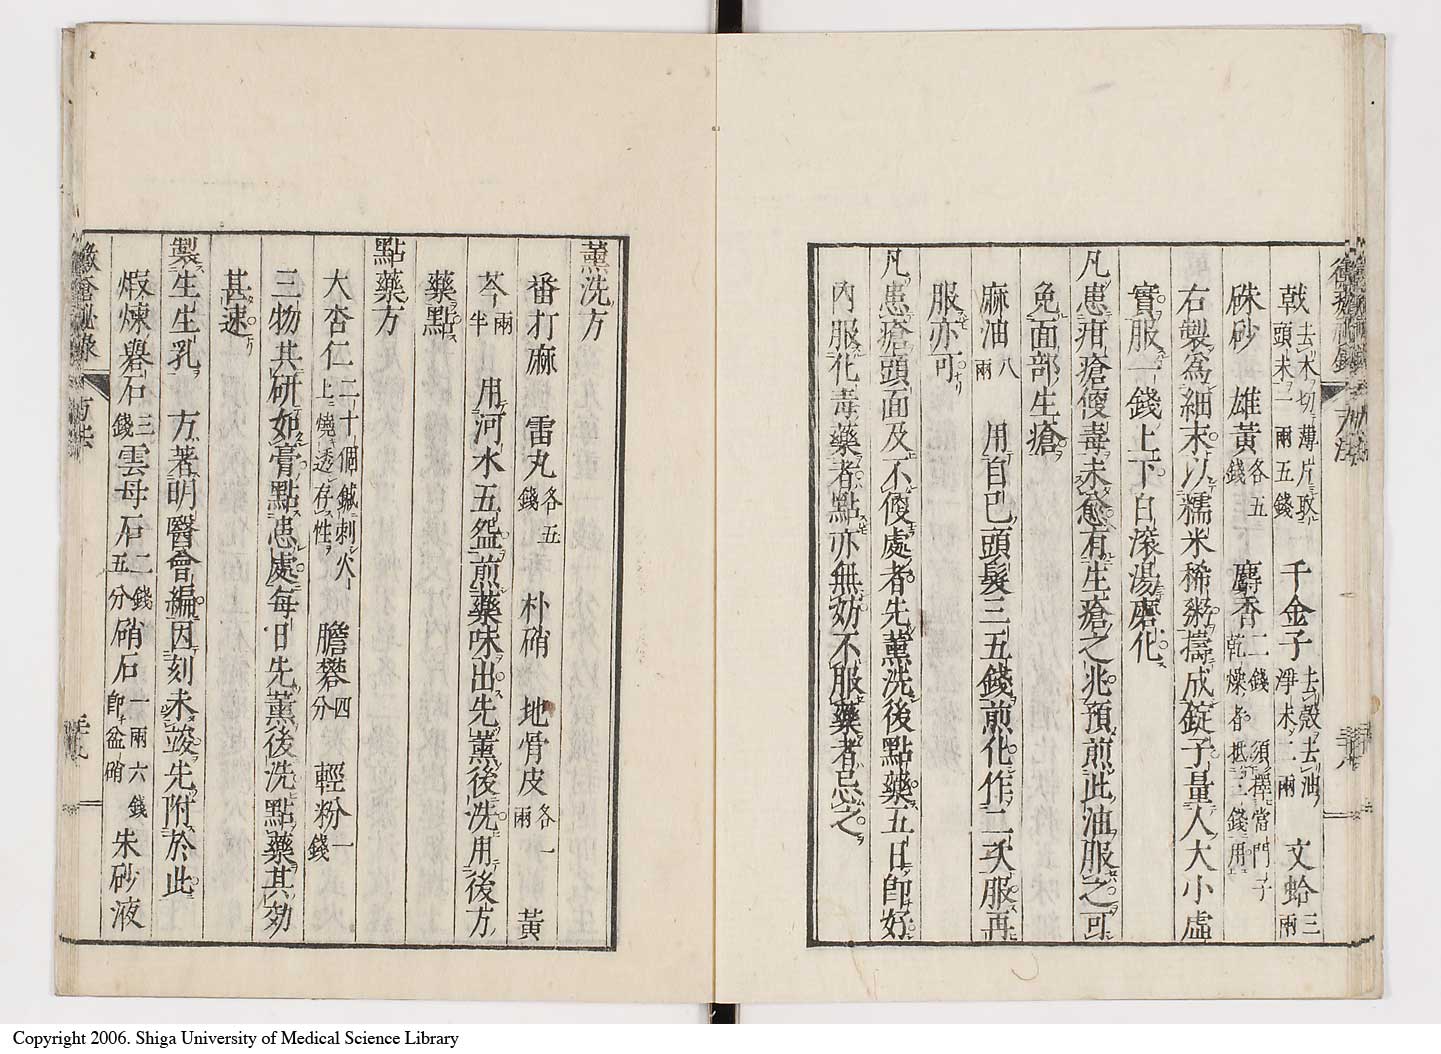 戟去木切薄片取頭末一兩五錢 千金子去殼去油淨末二兩 文蛤三兩
硃砂 雄黃各五錢 麝香二錢須擇當門子乾燥者抵二錢用
右製為細末以糯米稀粥擣成錠子量人大小虛
實服一錢上下白滾湯磨化
凡患疳瘡便毒未愈有生瘡之兆預煎此油服之可
免面部生瘡
麻油八兩 用自己頭髮三五錢煎化作二次服再
服亦可
凡患瘡頭面及不便處者先薰洗後點藥五日卽好
內服化毒藥者點亦無効不服藥者忌之
薰洗方
番打麻 雷丸各五錢 朴硝 地骨皮各一兩 黃
芩兩半 用河水五盌煎藥味出先薰後洗用後方
藥點
點藥方
大杏仁二十個鍼刺火上燒透存性 膽礬四分 輕粉一錢
三物共研如膏點患處每日先薰後洗點藥其効
甚速
製生生乳 方著明醫會編因刻未竣先附於此
煆煉礜石三錢雲母石二錢五分硝石一兩六錢卽盆硝朱砂液
黴瘡秘錄 方法
Copyright 2006. Shiga University of Medical Science Library